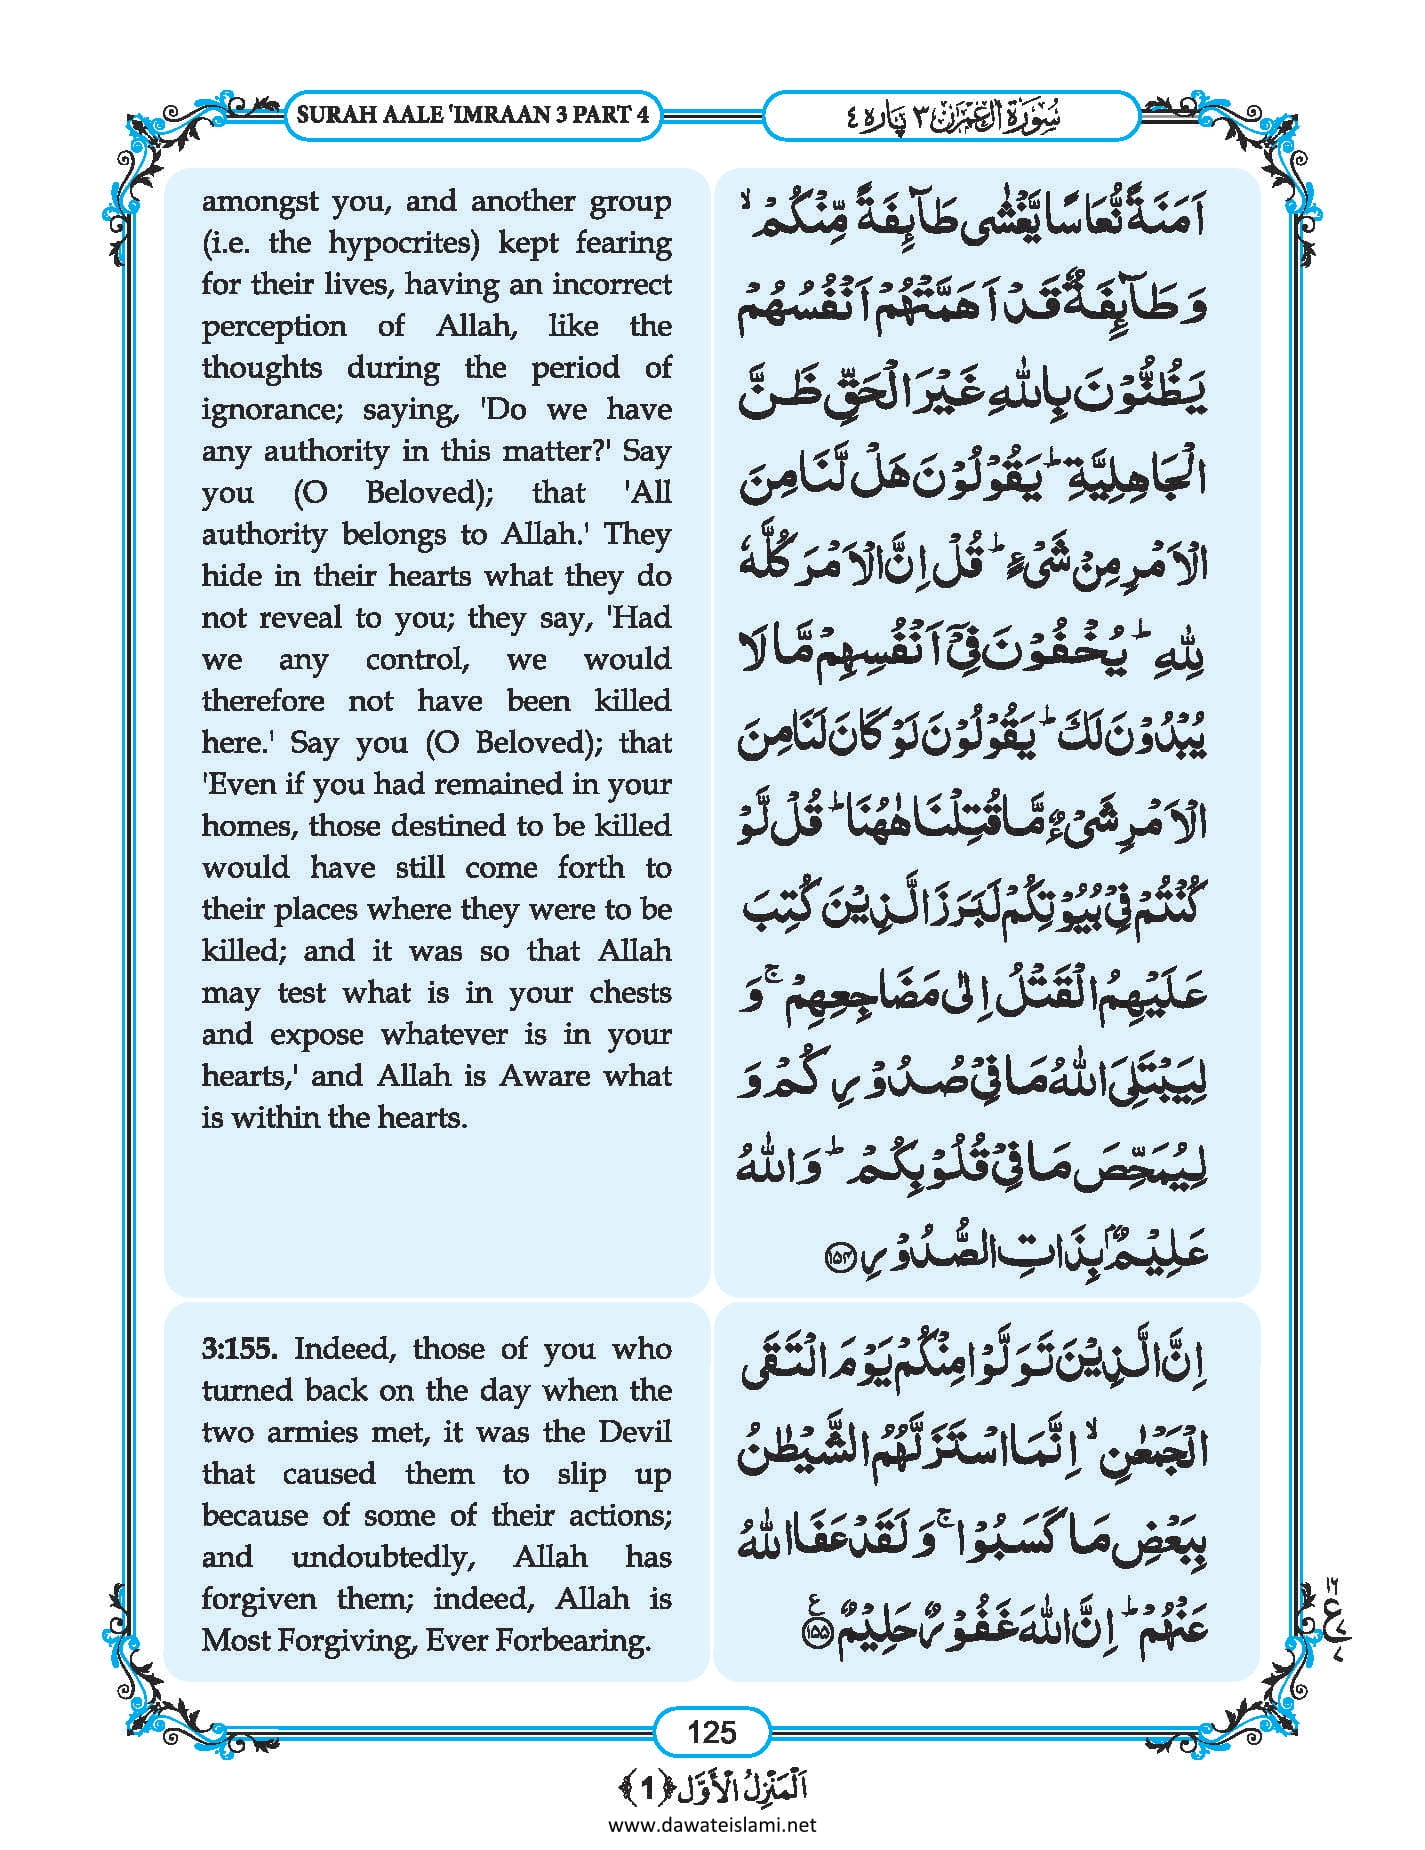 SURAH AALE 'IMRAAN 3 PART 4
سُوْرَةُ اٰلِ عِمْرٰن ٣ پَارہ ٤
amongst you, and another group
(i.e. the hypocrites) kept fearing
for their lives, having an incorrect
perception of Allah, like the
thoughts during the period of
ignorance; saying, 'Do we have
any authority in this matter?' Say
you (O Beloved); that 'All
authority belongs to Allah.' They
hide in their hearts what they do
not reveal to you; they say, 'Had
we any control, we would
therefore not have been killed
here.' Say you (O Beloved); that
'Even if you had remained in your
homes, those destined to be killed
would have still come forth to
their places where they were to be
killed; and it was so that Allah
may test what is in your chests
and expose whatever is in your
hearts,' and Allah is Aware what
is within the hearts.
اَمَنَةً نُّعَاسًا يَّغْشٰى طَآىِٕفَةً مِّنْكُمْ ۙ
وَ طَآىِٕفَةٌ قَدْ اَهَمَّتْهُمْ اَنْفُسُهُمْ
يَظُنُّوْنَ بِاللّٰهِ غَيْرَ الْحَقِّ ظَنَّ
الْجَاهِلِيَّةِ ؕ يَقُوْلُوْنَ هَلْ لَّنَا مِنَ
الْاَمْرِ مِنْ شَیْءٍ ؕ قُلْ اِنَّ الْاَمْرَ كُلَّهٗ
لِلّٰهِ ؕ يُخْفُوْنَ فِیْۤ اَنْفُسِهِمْ مَّا لَا
يُبْدُوْنَ لَكَ ؕ يَقُوْلُوْنَ لَوْ كَانَ لَنَا مِنَ
الْاَمْرِ شَیْءٌ مَّا قُتِلْنَا هٰهُنَا ؕ قُلْ لَّوْ
كُنْتُمْ فِیْ بُيُوْتِكُمْ لَبَرَزَ الَّذِيْنَ كُتِبَ
عَلَيْهِمُ الْقَتْلُ اِلٰى مَضَاجِعِهِمْ ۚ وَ
لِيَبْتَلِیَ اللّٰهُ مَا فِیْ صُدُوْرِكُمْ وَ
لِيُمَحِّصَ مَا فِیْ قُلُوْبِكُمْ ؕ وَاللّٰهُ
عَلِيْمٌۢ بِذَاتِ الصُّدُوْرِ ۝۱۵۴
3:155. Indeed, those of you who
turned back on the day when the
two armies met, it was the Devil
that caused them to slip up
because of some of their actions;
and undoubtedly, Allah has
forgiven them; indeed, Allah is
Most Forgiving, Ever Forbearing.
اِنَّ الَّذِيْنَ تَوَلَّوْا مِنْكُمْ يَوْمَ الْتَقَى
الْجَمْعٰنِ ۙ اِنَّمَا اسْتَزَلَّهُمُ الشَّيْطٰنُ
بِبَعْضِ مَا كَسَبُوْا ۚ وَ لَقَدْ عَفَا اللّٰهُ
عَنْهُمْ ؕ اِنَّ اللّٰهَ غَفُوْرٌ حَلِيْمٌ ۝۱۵۵ ع
۱۶
ع
۷
125
اَلْمَنْزِلُ الْاَوَّل ﴿1﴾
www.dawateislami.net